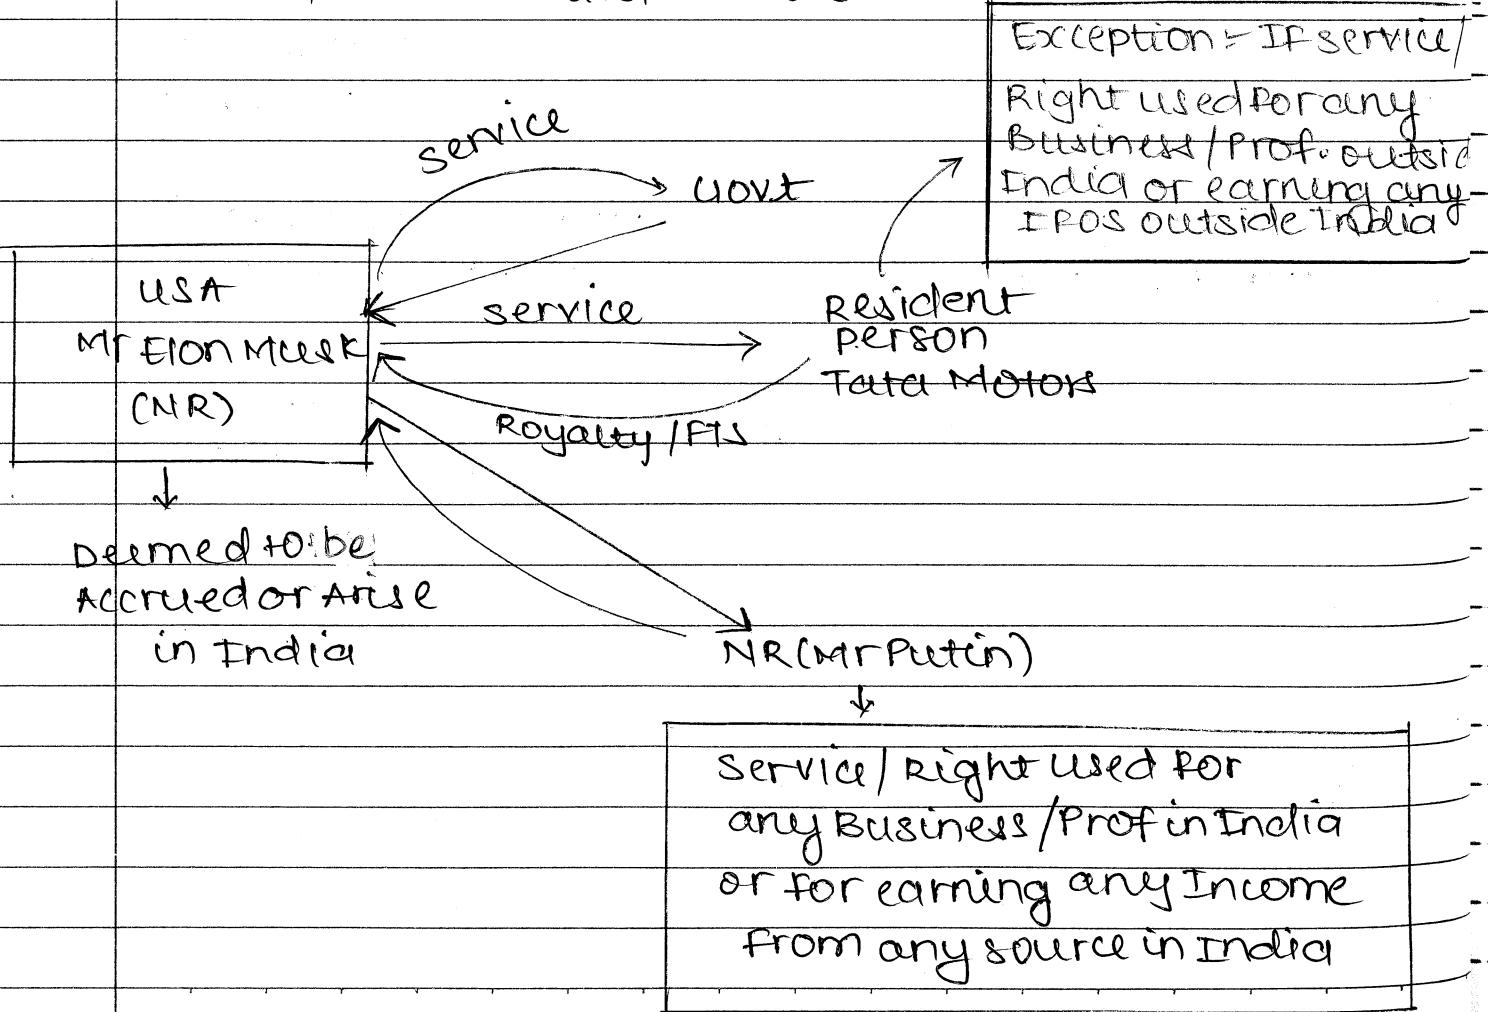 Exception :- If service/
Right used for any
Business/Prof. outsid
India or earning any
IFOS outside India
service
Govt
USA
Mr Elon Musk
(NR)
service
Resident
person
Tata Motors
Royalty/FTS
Deemed to be
Accrued or Arise
in India
NR (Mr Putin)
Service/Right used for
any Business/Prof in India
or for earning any Income
from any source in India